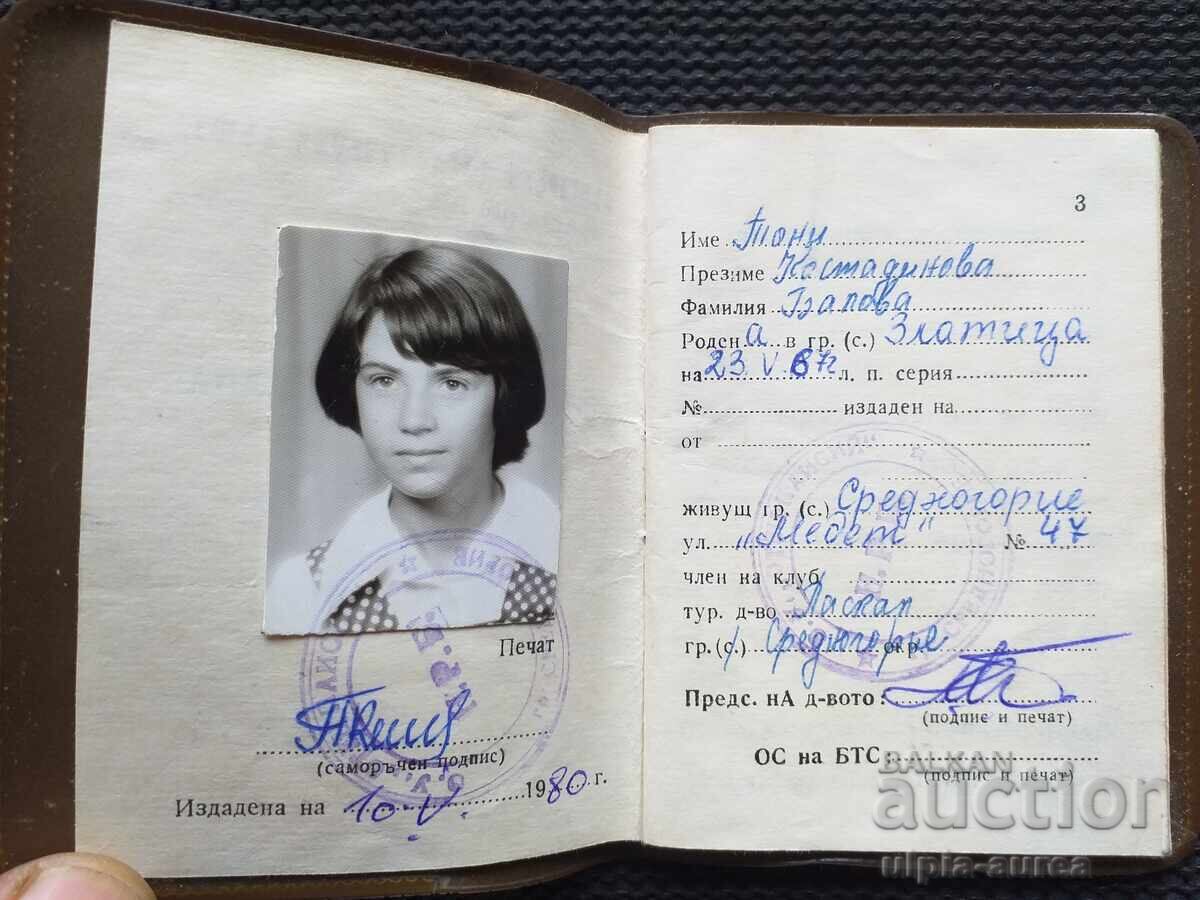 Печат
(саморъчен подпис)
Издадена на 10.V. 1980 г.
3
Име Тони
Презиме Костадинова
Фамилия
Родена в гр. (с.) Златица
на 23 V 67 г. л. п. серия
№ издаден на
от
живущ гр. (с.) Средногорие
ул. „Медет" № 47
член на клуб
тур. д-во Паскал
гр. (с.) Средногорие окр.
Предс. нА д-вото:
(подпис и печат)
ОС на БТС:
(подпис и печат)
BALKAN
auction
ulpia-aurea